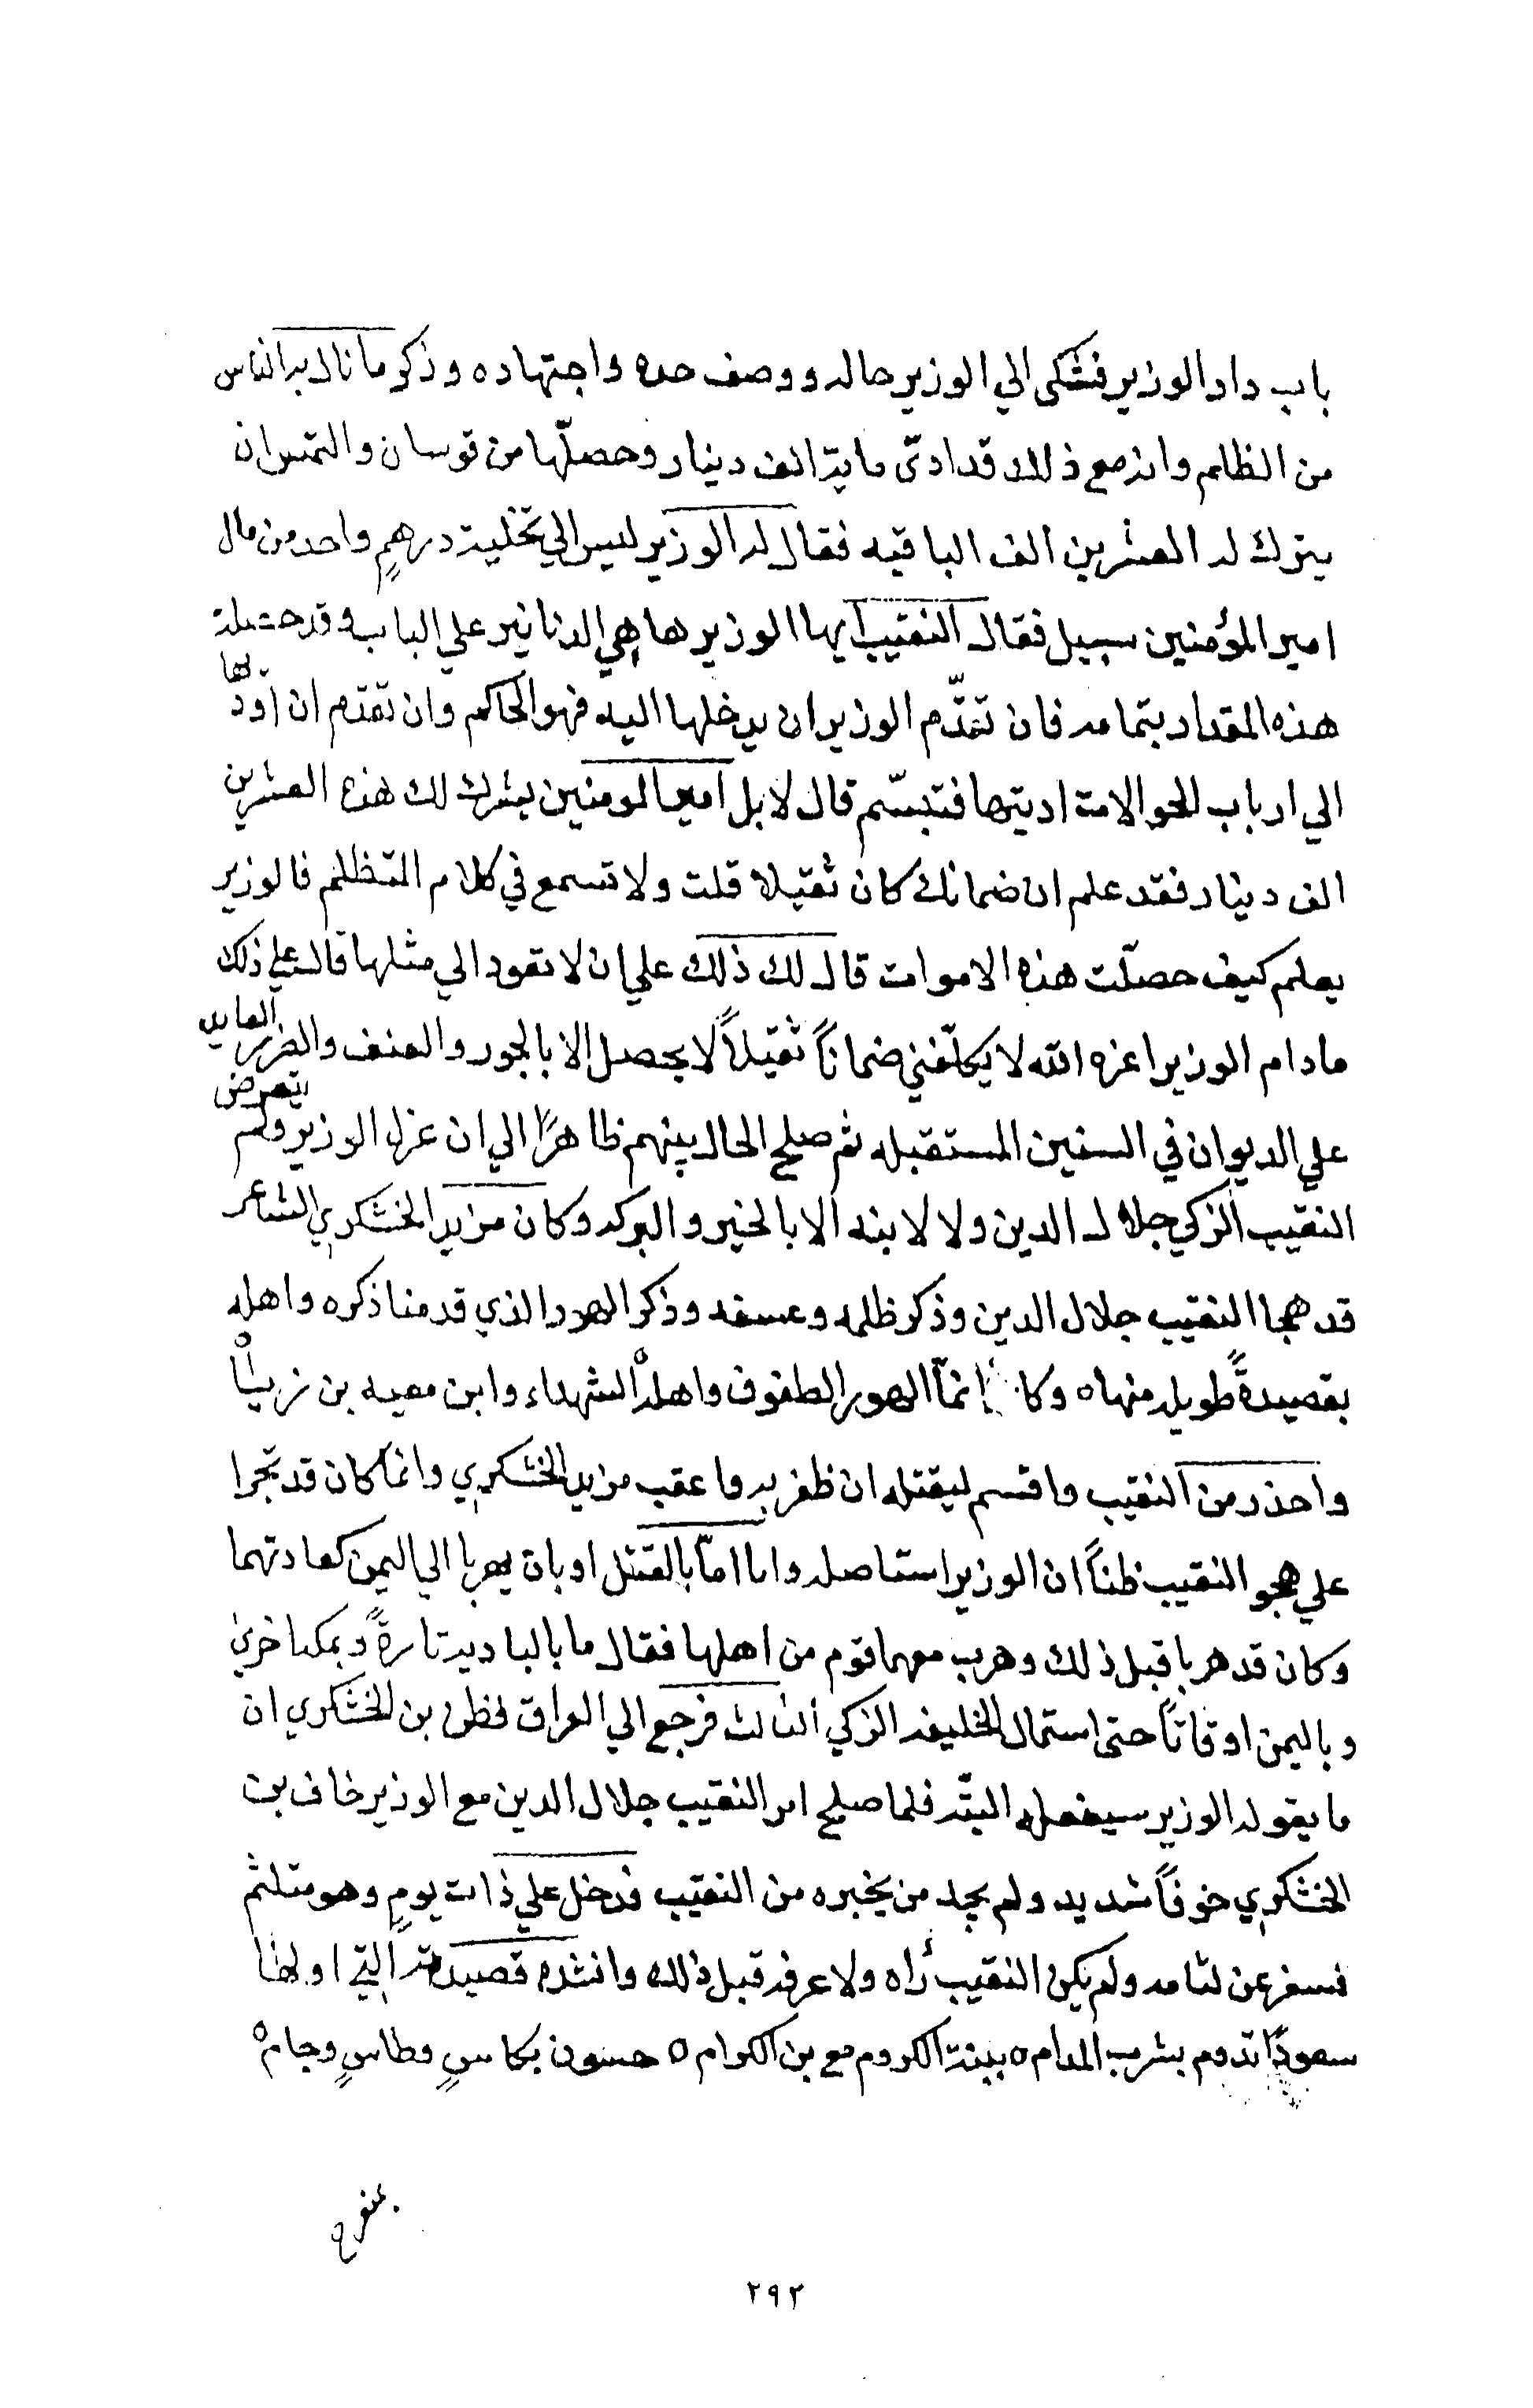 باب دار الوزير فشكى الي الوزير حاله ووصف جده واجتهاده وذكر ما نال به الناس
من الظلم وانه مع ذلك قد ادىّ مايه الف دينار وحصلّها من قوسان والتمس ان
يترك له العشرين الف الباقيه فقال له الوزير ليس الي تخلية درهمٍ واحد من مال
امير المؤمنين سبيل فقال النقيب ايها الوزير ها هي الدنانير علي الباب وقد حصلت
هذه المقدار بتمامه فان تقدّم الوزير ان يدخلها اليه فهو الحاكم وان تقدم ان اودّيها
الي ارباب الحوالات اديتها فتبسّم قال لا بل امير المومنين يترك لك هذه العشرين
الف دينار فقد علم ان ضمانك كان ثقيلا قلت ولا تسمع في كلام المتظلم فالوزير
يعلم كيف حصلّت هذه الاموات قال لك ذلك علي ان لا تعود الي مثلها قال علي ذلك
ما دام الوزير اعزه الله لا يكلّفني ضماناً ثقيلاً لا يحصل الا بالجور والعنف والضرر العايد
علي الديوان في السنين المستقبله ثم صلح الحال بينهم ظاهرًا الي ان عزل الوزير ولم يتعرض
النقيب الزكي جلال الدين ولا لابنه الا بالخير والبركه وكان مزيد الخشكري الشاعر
قد هجا النقيب جلال الدين وذكر ظلمه وعسفه وذكر الهور الذي قدمنا ذكره واهله
بقصيدةً طويله منها ه وكانما الهور الطفوف واهله الشهداء وابن معيه بن زياد
واحذر من النقيب واقسم ليقتله ان ظفر به وما عقب مزيد الخشكري وانما كان قد تجرا
علي هجو النقيب ظناً ان الوزير استاصله واما امّا بالقتل او بان يهربا الي اليمن كعادتهما
وكان قد هربا قبل ذلك وهرب معهما قوم من اهلها فقال ما بالباديه تارةً وبمكه اخري
وباليمن اوقاتاً حتى استمال الخليفه الزكي الثالث فرجع الي العراق فظن بن الخشكري ان
ما يقوله الوزير سيفعله البتّه فلما صلح امر النقيب جلال الدين مع الوزير خاف بن
الخشكري خوفاً شديد ولم يجد من يخبره من النقيب فدخل علي ذات يومٍ وهو متلثم
فسفر عن لثامه ولم يكن النقيب رأه ولا عرفه قبل ذلك وانشده قصيدته التي اولها
سعودًا تدوم بشرب المدام ه ببنة الكروم مع بن الكرام ه حسون بكاسٍ وطاسٍ وجام ه
٢٩٢